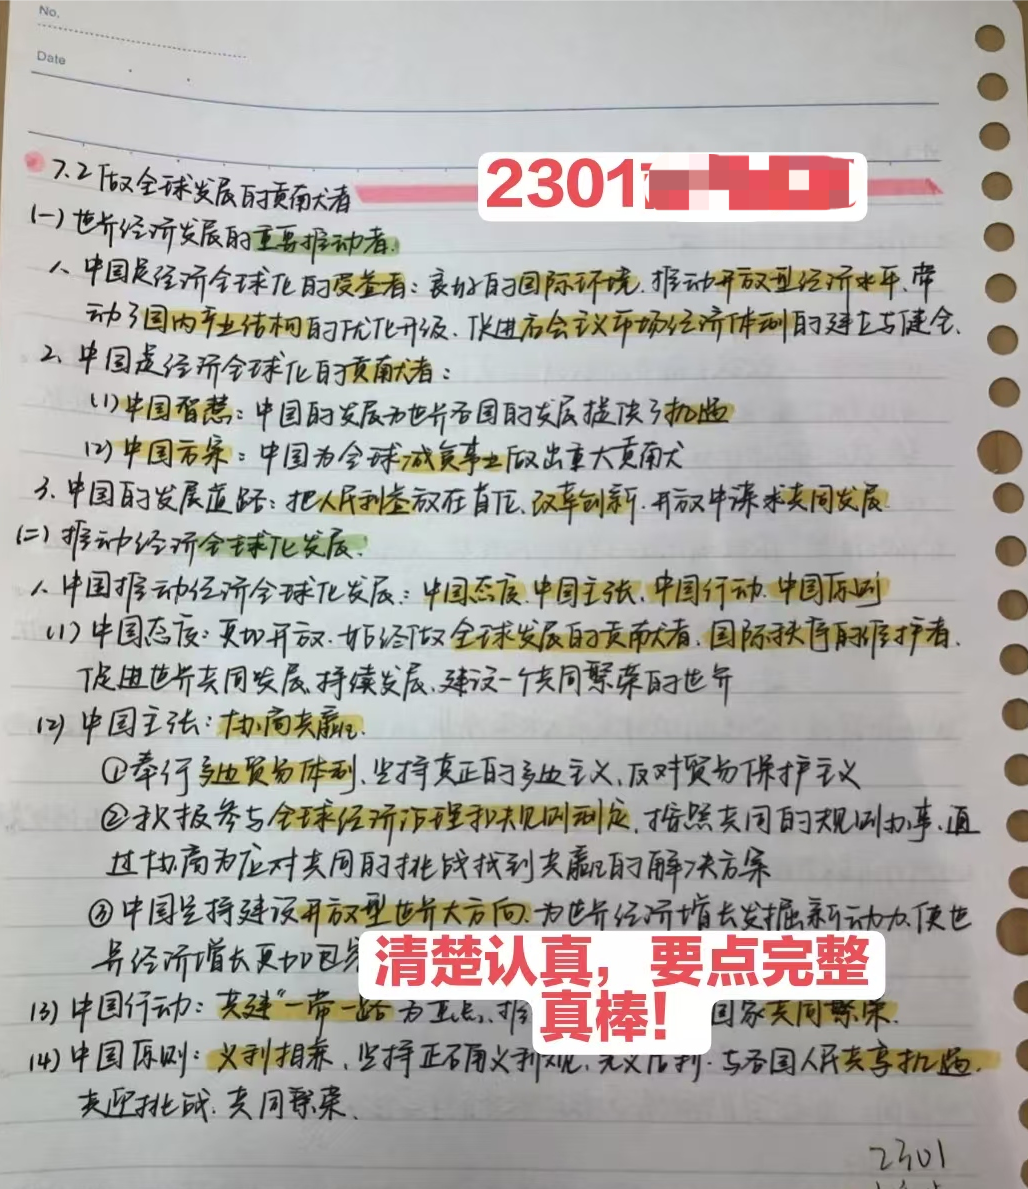 No.
Date
7.2 做全球发展的贡献者
2301
(一) 世界经济发展的重要推动者.
1. 中国是经济全球化的受益者: 良好的国际环境. 推动开放型经济水平、带
动了国内产业结构的优化升级. 促进社会主义市场经济体制的建立与健全.
2. 中国是经济全球化的贡献者:
(1) 中国智慧: 中国的发展为世界各国的发展提供了机遇
(2) 中国方案: 中国为全球减贫事业做出重大贡献
3. 中国的发展道路: 把人民利益放在首位. 改革创新. 开放中谋求共同发展
(二) 推动经济全球化发展.
1. 中国推动经济全球化发展: 中国态度. 中国主张. 中国行动. 中国原则
(1) 中国态度: 更加开放. 始终做全球发展的贡献者. 国际秩序的维护者.
促进世界共同发展. 持续发展. 建设一个共同繁荣的世界
(2) 中国主张: 协商共赢.
①奉行多边贸易体制. 坚持真正的多边主义, 反对贸易保护主义
②积极参与全球经济治理和规则制定. 按照共同的规则办事. 通
过协商为应对共同的挑战找到共赢的解决方案
③中国坚持建设开放型世界大方向. 为世界经济增长发掘新动力. 使世
界经济增长更加包
清楚认真，要点完整
真棒!
(3) 中国行动: 共建"一带一路为重点. 推 国家共同繁荣.
(4) 中国原则: 义利相兼. 坚持正确义利观. 先义后利. 与各国人民共享机遇.
共迎挑战. 共同繁荣.
2301